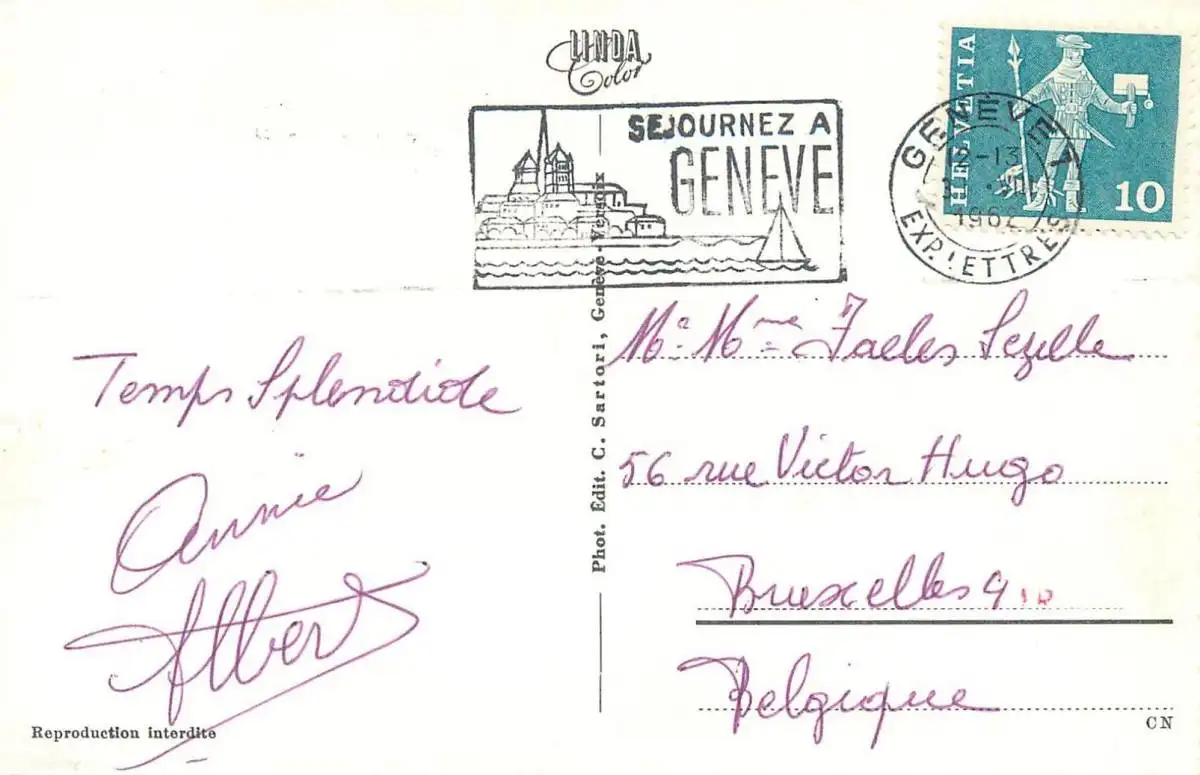 LINDA
Color
SEJOURNEZ A
GENEVE
HELVETIA
10
GENÈVE 1
12-13
1962
EXP. LETTRES
Phot. Edit. C. Sartori, Genève-Versoix
Temps Splendide
Annie
Albert
Reproduction interdite
Mr Mme
56 rue Victor Hugo
Bruxelles
Belgique
CN